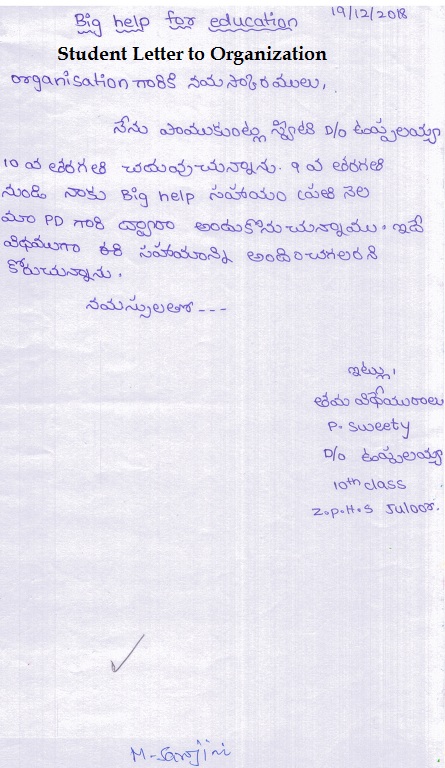 Big help for education
19/12/2018
Student Letter to Organization
organisation గారికి నమస్కారములు,
నేను పాముకుంట్ల స్వీటి D/o ఉప్పలయ్య
10 వ తరగతి చదువుచున్నాను. 9 వ తరగతి
నుండి నాకు Big help సహాయం ప్రతి నెల
మా PD గారి ద్వారా అందుకొనుచున్నాము. ఇదే
విధముగా ఈ సహాయాన్ని అందించగలరని
కోరుచున్నాను.
నమస్సులతో ---
ఇట్లు,
తమ విధేయురాలు
P. Sweety
D/o ఉప్పలయ్య
10th class
Z.P.H.S Suloor.
M-Sarojini